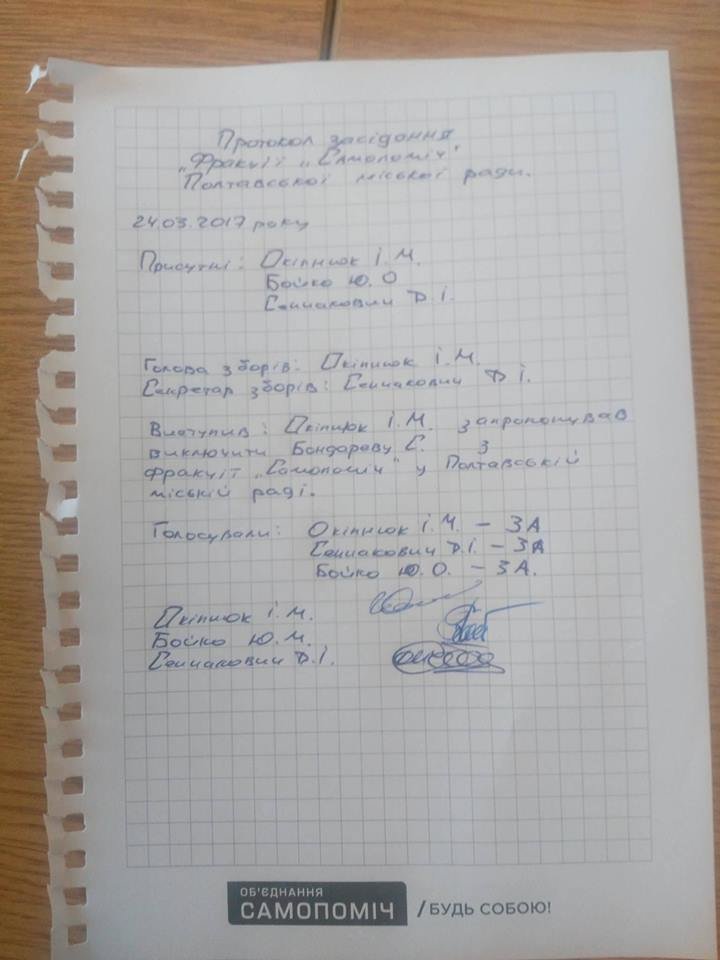 Протокол засідання
„Фракції „Самопоміч"
Полтавської міської ради.
24.03.2017 року
Присутні: Окіпнюк І. М.
Бойко Ю. О
Сеншакович Д. І.
Голова зборів: Окіпнюк І. М.
Секретар зборів: Сеншакович Д І.
Виступив: Окіпнюк І. М. запропонував
виключити Бондареву С. з
фракції „Самопоміч" у Полтавській
міській раді.
Голосували: Окіпнюк І. М. – ЗА
Сеншакович Д. І. – ЗА
Бойко Ю. О. – ЗА.
Окіпнюк І. М.
Бойко Ю. М.
Сеншакович Д. І.
ОБ'ЄДНАННЯ
САМОПОМІЧ / БУДЬ СОБОЮ!